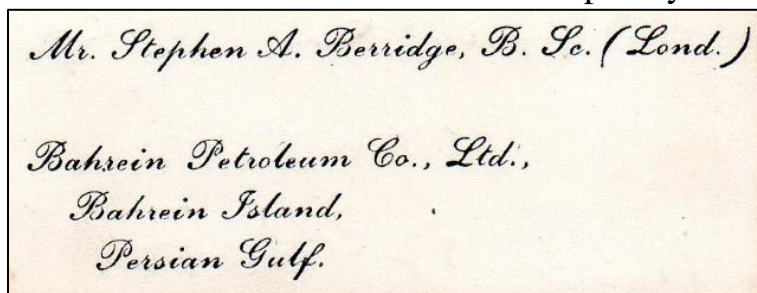 Mr. Stephen A. Berridge, B. Sc. (Lond.)
Bahrein Petroleum Co., Ltd.,
Bahrein Island,
Persian Gulf.